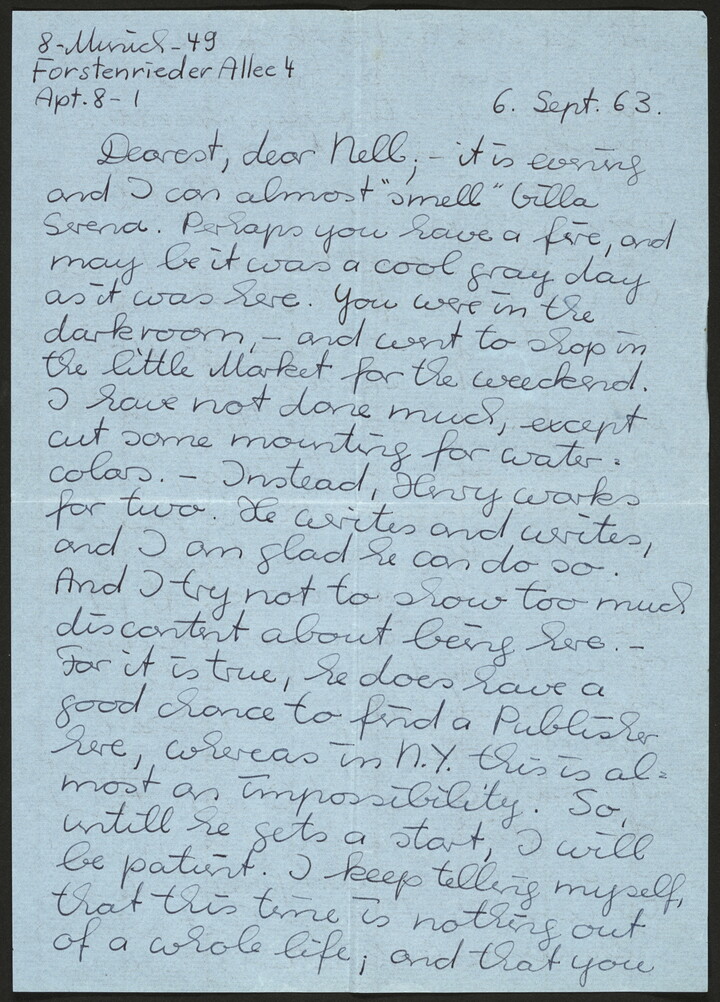 8-Munich-49
Forstenrieder Allee 4
Apt. 8-1
6. Sept. 63.
Dearest, dear Nell; – it is evening
and I can almost "smell" Villa
Serena. Perhaps you have a fire, and
may be it was a cool gray day
as it was here. You were in the
darkroom, – and went to shop in
the little Market for the weekend.
I have not done much, except
cut some mounting for water=
colors. – Instead, Henry works
for two. He writes and writes,
and I am glad he can do so.
And I try not to show too much
discontent about being here. –
For it is true, he does have a
good chance to find a Publisher
here, whereas in N.Y. this is al=
most an impossibility. So,
untill he gets a start, I will
be patient. I keep telling myself,
that this time is nothing out
of a whole life; and that you